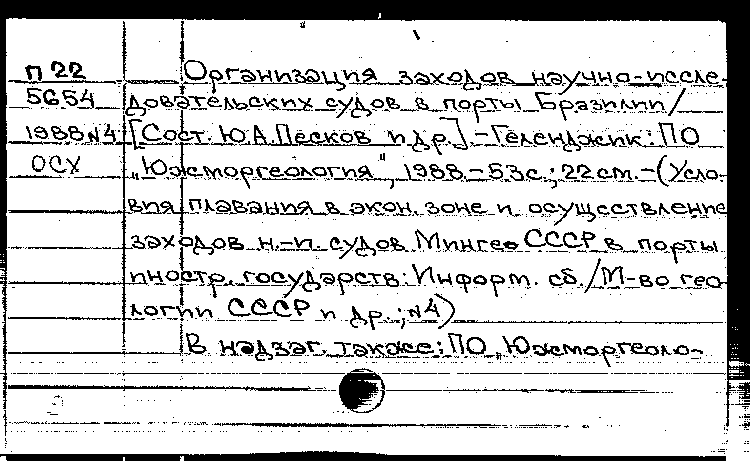 П 22 Организация заходов научно-иссле-
5654 довательских судов в порты Бразилии/
1988 N4 [Сост. Ю.А.Песков и др.].-Геленджик: ПО
ОСХ "Южморгеология", 1988.-53с.; 22см.-(Усло-
вия плавания в экон. зоне и осуществление
заходов н.-и. судов Мингео СССР в порты
иностр. государств: Информ. сб./М-во гео-
логии СССР и др.; N4)
В надзаг. также: ПО "Южморгеоло-